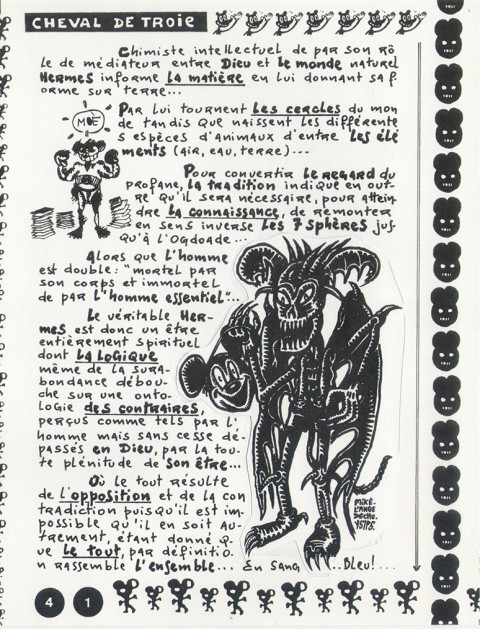 CHEVAL DE TROIE
Chimiste intellectuel de par son rô
le de médiateur entre Dieu et le monde naturel
Hermes informe la matière en lui donnant sa f
orme sur terre...
MOE
Par lui tournent les cercles du mon
de tandis que naissent les différente
s espèces d'animaux d'entre les élé
ments (air, eau, terre)...
Pour convertir le regard du
profane, la tradition indique en out-
re qu'il sera nécessaire, pour attein
dre la connaissance, de remonter
en sens inverse les 7 sphères jus
qu'à l'Ogdoade...
Alors que l'homme
est double: "mortel par
son corps et immortel
de par l'homme essentiel"...
Le véritable Her-
mes est donc un être
entièrement spirituel
dont la logique
même de la sura-
bondance débou-
che sur une onto-
logie des contraires,
perçus comme tels par l'
homme mais sans cesse dé-
passés en Dieu, par la tou-
te plénitude de son être...
Où le tout résulte
de l'opposition et de la con
tradiction puisqu'il est im-
possible qu'il en soit au-
trement, étant donné q-
ue le tout, par définitio-
n rassemble l'ensemble... En sang ...Bleu!...
MIKE-
L'ANGE
DÉCHU.
4 1